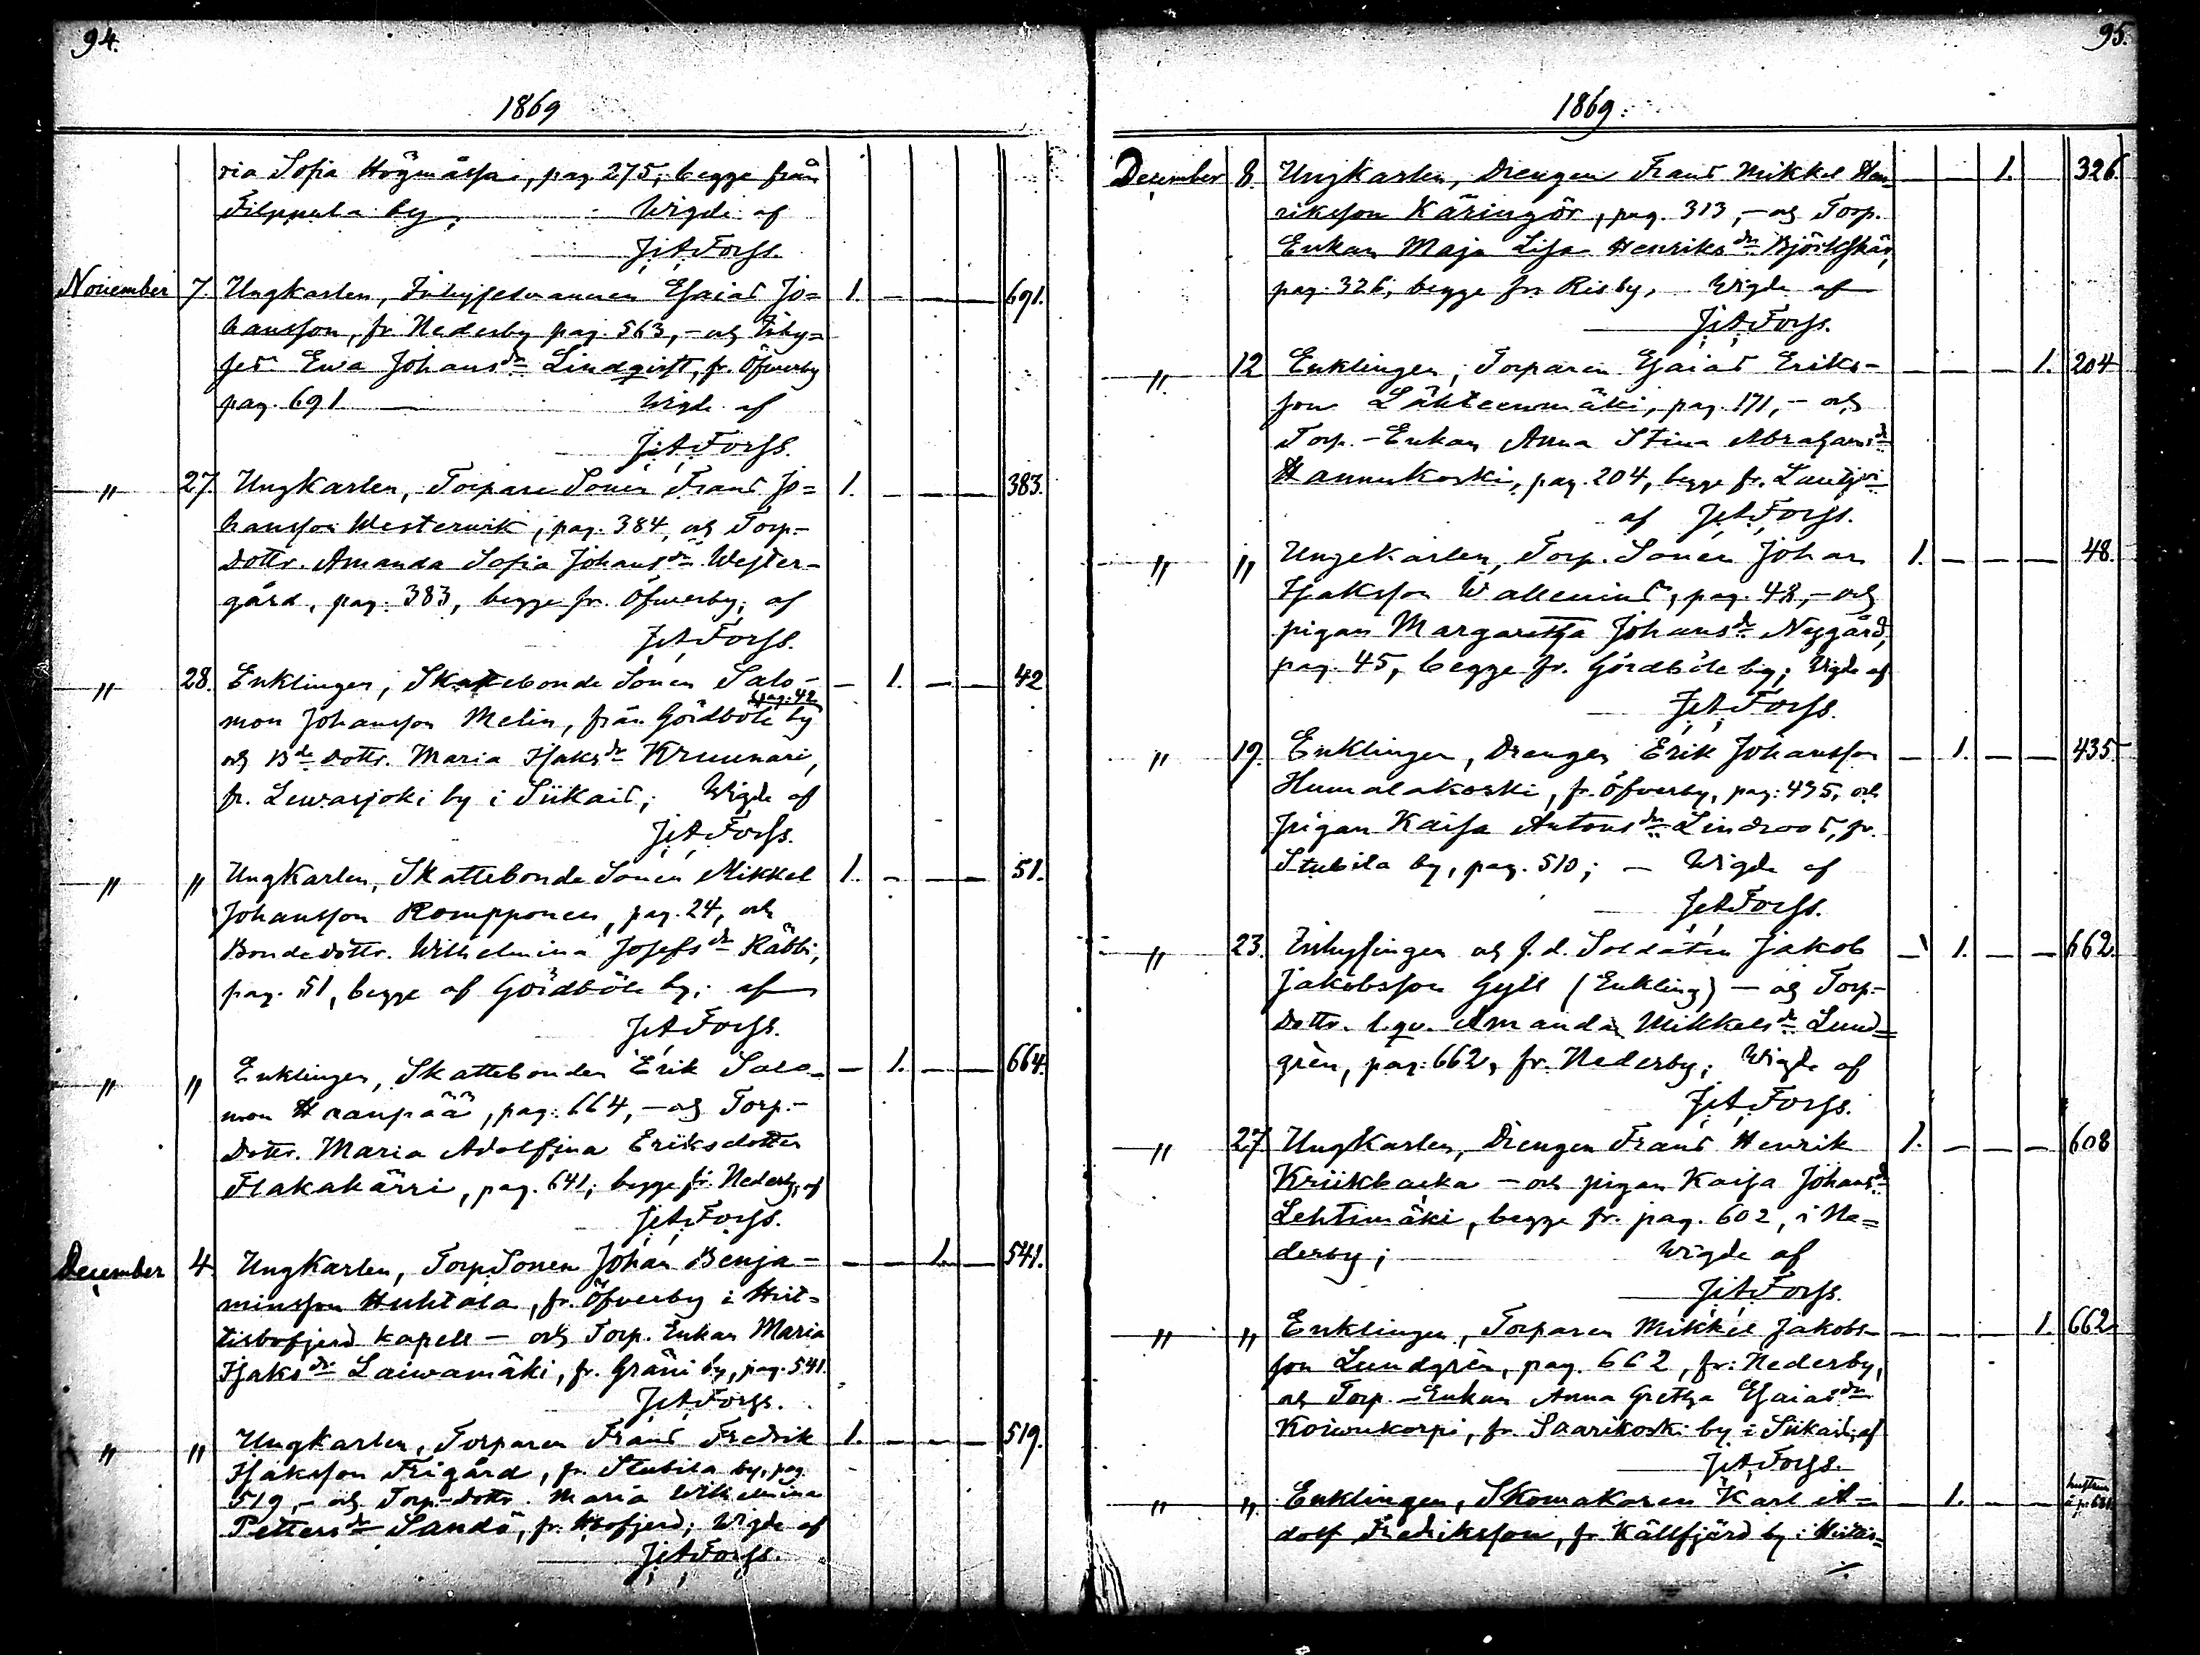 94.
1869
ria Sofia Högmåssa, pag. 275, begge från
Filppula by, Wigde af
J.A. Forss.
November 7. Ungkarlen, Inhysesmannen Esaias Jo= 1. — — — 691.
hansson, fr Nederby pag. 563, – och Inhy=
ses Ewa Johansdr Lindqvist, fr. Öfverby
pag. 691 — Wigde af
J.A. Forss.
" 27. Ungkarlen, Torpare Sonen Frans Jo= 1. — — — 383.
hansson Westerwik, pag. 384, och Torp-
dottr. Amanda Sofia Johansdr Wester-
gård, pag. 383, begge fr. Öfwerby; af
J.A. Forss.
" 28. Enklingen, Skattebonde Sonen Salo- — 1. — — 42
mon Johansson Melin, från Gördböle by pag. 42
och Bde dottr. Maria Isaksdr Kruunari,
fr. Lewasjoki by i Siikais; Wigde af
J.A. Forss.
" " Ungkarlen, Skattebonde Sonen Mikkel 1. — — — 51.
Johansson Rompponen, pag. 24, och
Bondedottr. Wilhelmina Josefsdr Räbbi,
pag. 51, begge af Gördböle by; af
J.A. Forss.
" " Enklingen, Skattebonden Erik Salo- — 1. — — 664.
mon Haanpää, pag. 664, – och Torp.-
Dottr. Maria Adolfina Eriksdotter
Flakakärri, pag. 641; begge fr. Nederby, af
J.A. Forss.
December 4. Ungkarlen, Torp Sonen Johan Benja- — — 1. — 541.
minsson Huhtala, fr. Öfverby i Hvit-
tisbofjerd kapell – och Torp. Enkan Maria
Isaksdr Laiwamäki, fr. Gräni by, pag. 541.
J.A. Forss.
" " Ungkarlen, Torparen Frans Fredrik 1. — — — 519.
Isaksson Frigård, fr. Stubila by, pag.
519, – och Torp-dottr. Maria Wilhelmina
Pettersdr Sandö, fr. Hbofjerd; Wigde af
J.A. Forss.
95.
1869.
December 8. Ungkarlen, Drengen Frans Mikkel Hen- — — 1. 326.
riksson Käringör, pag. 313, – och Torp.
Enkan Maja Lisa Henriksdr Björkskär,
pag. 326, begge fr. Risby, Wigde af
J.A. Forss.
" 12 Enklingen, Torparen Esaias Eriks- — — — 1. 204
son Lähteenmäki, pag. 171, – och
Torp. – Enkan Anna Stina Abrahamsdr
Hannukoski, pag. 204, begge fr.
af J.A. Forss.
" " Ungekarlen, Torp. Sonen Johan 1. — — — 48.
Isaksson Wallenius, pag. 48, – och
pigan Margaretha Johansdr Nygård,
pag. 45, begge fr. Gördböle by; Wigde af
J.A. Forss.
" 19. Enklingen, Drengen Erik Johansson — 1. — — 435
Humalakoski, fr. Öfverby, pag. 435, och
pigan Kaisa Antonsdr Lindroos, fr.
Stubila by, pag. 510; – Wigde af
J.A. Forss.
" 23. Inhysingen och f.d. Soldaten Jakob — 1. — — 662.
Jakobsson Gyll (Enkling) – och Torp.-
Dottr. l. qv. Amanda Mikkelsdr Lund=
grèn, pag. 662, fr. Nederby; Wigde af
J.A. Forss.
" 27. Ungkarlen, Drengen Frans Henrik 1. — — — 608
Kriikbacka – och pigan Kaisa Johansdr
Lehtimäki, begge fr. pag. 602, i Ne=
derby; Wigde af
J.A. Forss.
" " Enklingen, Torparen Mikkel Jakobs- — — — 1. 662.
son Lundgrèn, pag. 662, fr. Nederby,
och Torp. – Enkan Anna Gretha Esaiasdr
Koiwukorpi, fr. Saarikoski by i Siikais; af
J.A. Forss.
" " Enklingen, Skomakaren Karl A- — 1. — — hustrun
dolf Fredriksson, fr Källfjärd by i Hvittis-